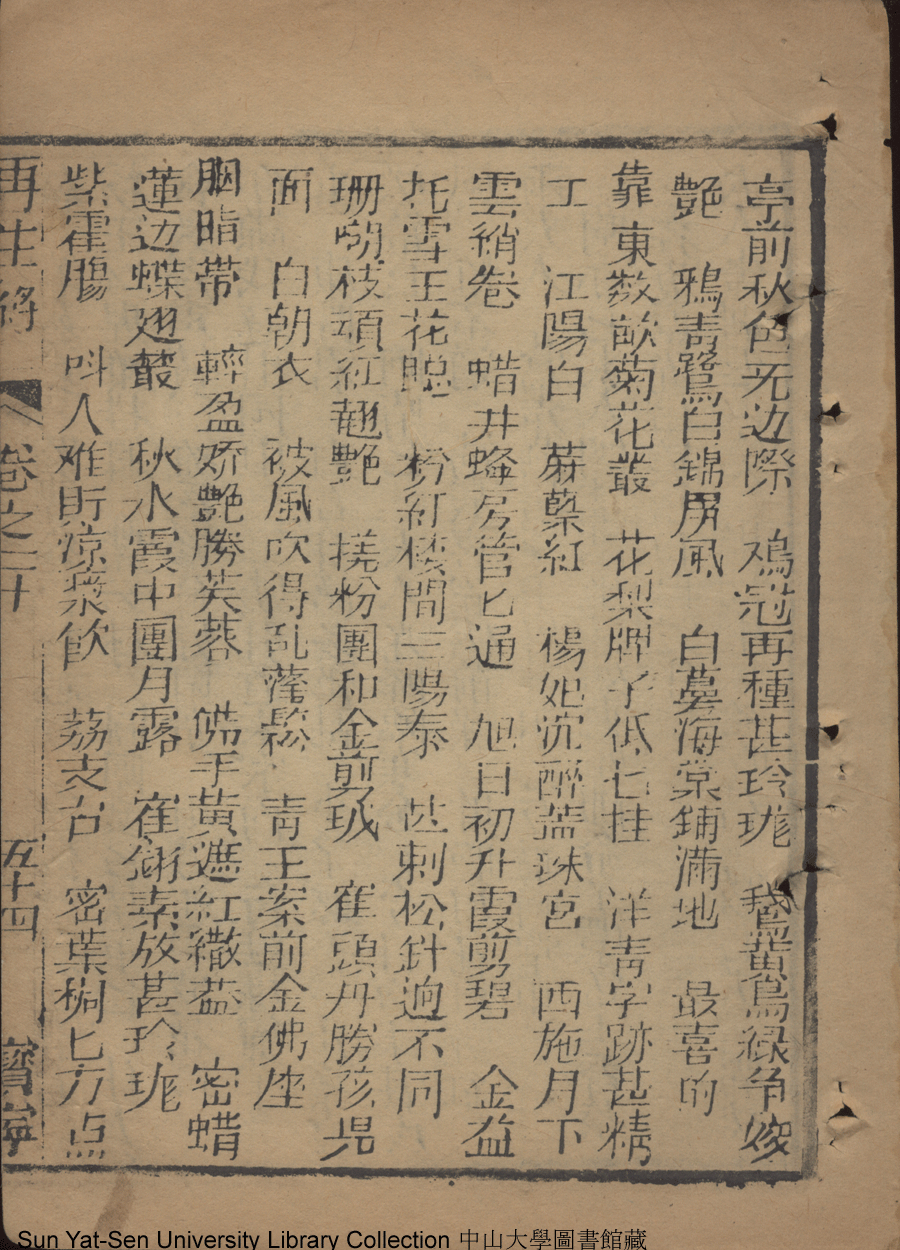 亭前秋色无边際　鳮冠再種甚玲珑　鵝黄鳥緑争嫁
艷　鴉青鷺白錦屏風　白蔓海棠鋪滿地　最喜的
靠東数畝菊花叢　花梨牌子低匕挂　洋青字跡甚精
工　江陽白　蔴藁紅　楊妃沉醉盖珠宫　西施月下
雲綃卷　蜡井蜂房管匕通　旭日初升霞剪碧　金盆
托雪玉花　粉紅楼間三陽泰　甚刺松針逈不同
珊瑚枝頭紅翹艷　搓粉團和金剪玻　隺頭丹勝孩児
面　白朝衣　被風吹得乱蓬鬆　青玉案前金佛座
胭脂带　輕盈娇艷勝芙蓉　佛手黄遮紅繖盖　密蜡
蓮边蝶翅叢　秋水霞中團月露　隺翎素放甚玲珑
紫霍腸　呌人难斷凉漿飲　荔支　密葉桐匕万点
再生緣　卷之二十　五十四　寶寧
Sun Yat-Sen University Library Collection 中山大學圖書館藏